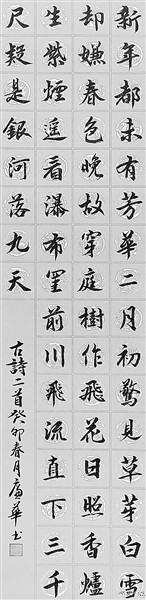 新年都未有芳華二月初驚見草芽白雪
却嫌春色晚故穿庭樹作飛花日照香爐
生紫煙遥看瀑布罣前川飛流直下三千
尺疑是銀河落九天
古詩二首癸卯春月廣華书